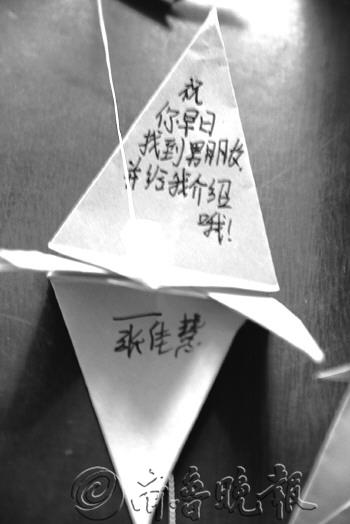 祝
你早日
找到男朋友
并给我介绍
哦!
张佳慧
©齐鲁晚报